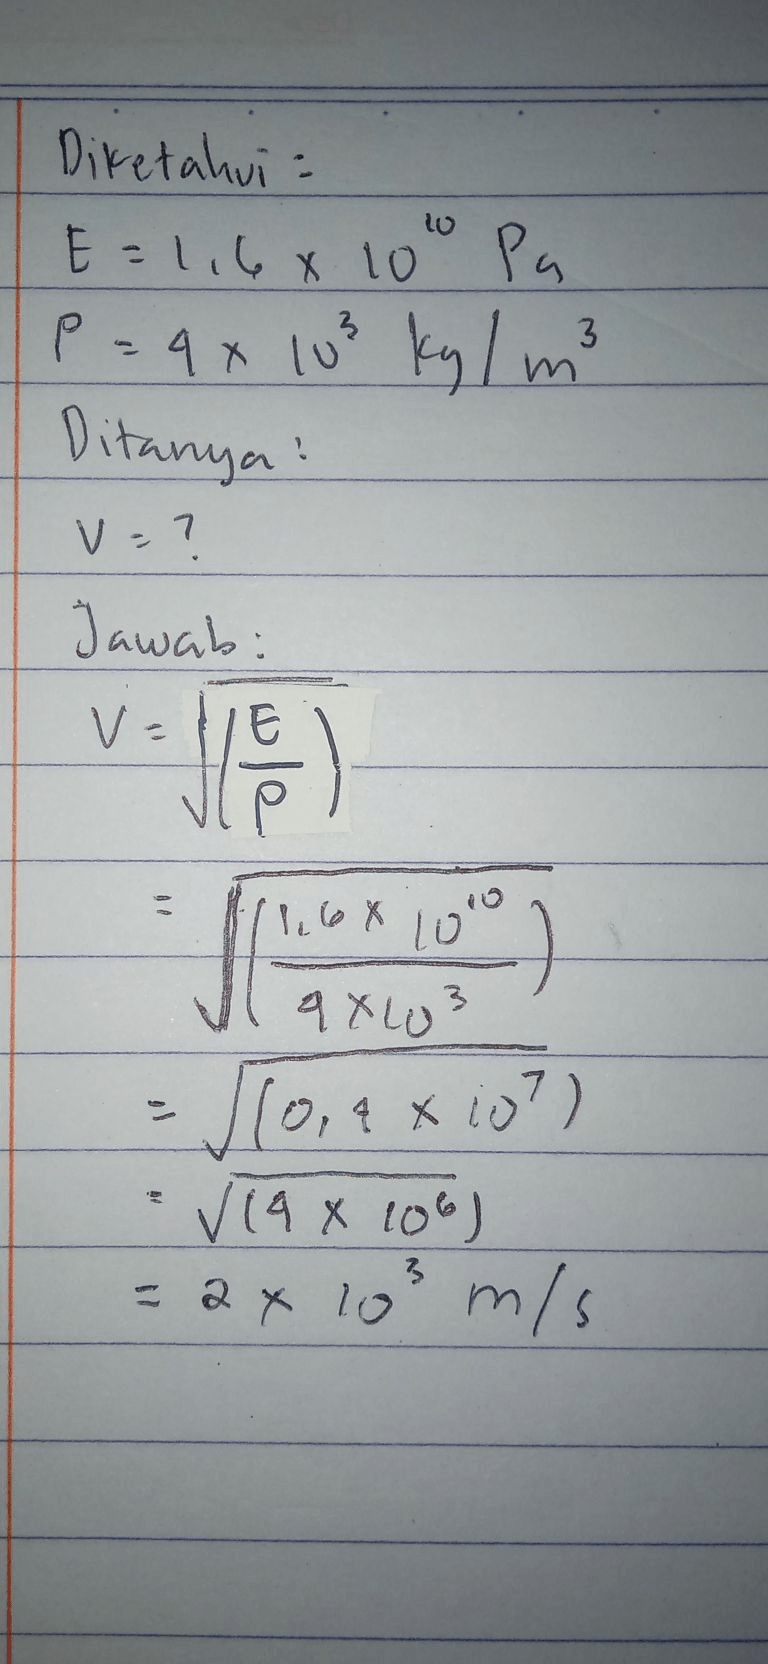 Diketahui =
E = 1,6 x 10¹⁰ Pa
ρ = 4 x 10³ kg/m³
Ditanya :
V = ?
Jawab :
V = √(E/ρ)
= √(1,6 x 10¹⁰ / 4 x 10³)
= √(0,4 x 10⁷)
= √(4 x 10⁶)
= 2 x 10³ m/s